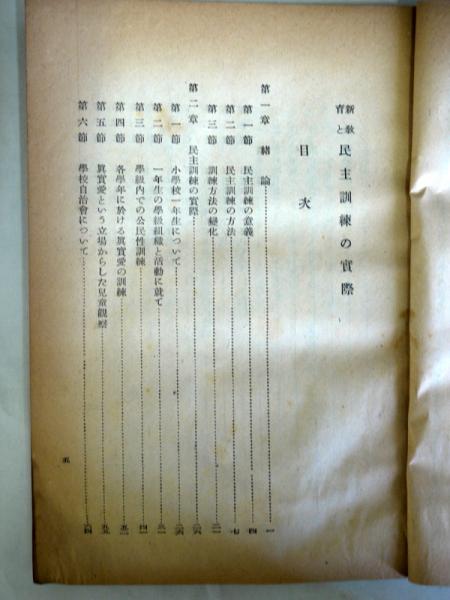 新教育と 民主訓練の實際
目次
第一章 緒論 一
第一節 民主訓練の意義 四
第二節 民主訓練の方法 七
第三節 訓練方法の變化
第二章 民主訓練の實際
第一節 小學校一年生について
第二節 一年生の學級組織と活動に就て
第三節 學級内での公民性訓練 四一
第四節 各學年に於ける眞實愛の訓練 五二
第五節 眞實愛という立場からした兒童觀察 五九
第六節 學校自治會について 六四
五